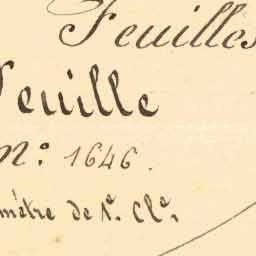 Feuilles
Feuille
N°. 1646.
mètre de 1e. Cle.